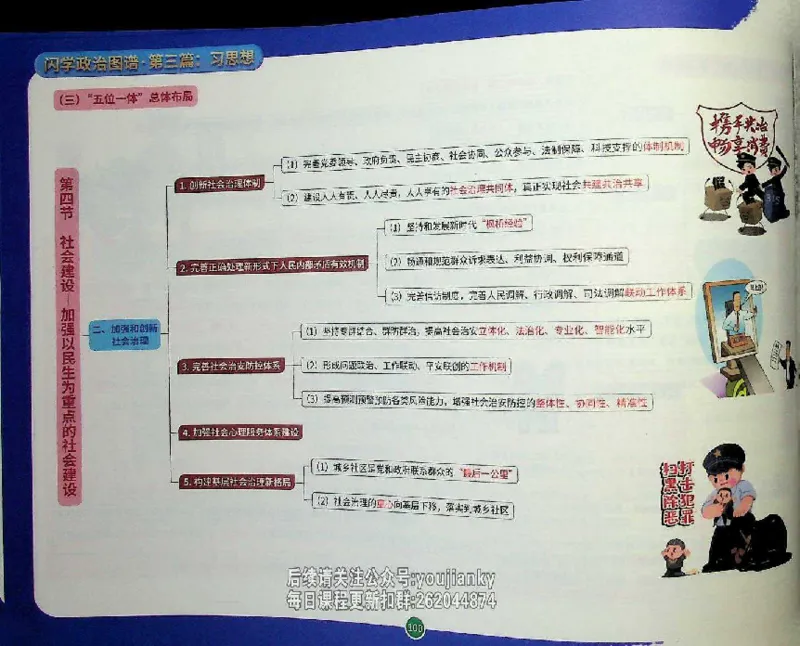 闪学政治图谱·第三篇：习思想
（三）“五位一体”总体布局
第四节 社会建设—加强以民生为重点的社会建设
二、加强和创新
社会治理
1. 创新社会治理体制
（1）完善党委领导、政府负责、民主协商、社会协同、公众参与、法制保障、科技支撑的体制机制
（2）建设人人有责、人人尽责，人人享有的社会治理共同体，真正实现社会共建共治共享
2. 完善正确处理新形式下人民内部矛盾有效机制
（1）坚持和发展新时代“枫桥经验”
（2）畅通和规范群众诉求表达、利益协调、权利保障通道
（3）完善信访制度，完善人民调解、行政调解、司法调解联动工作体系
3. 完善社会治安防控体系
（1）坚持专群结合、群防群治，提高社会治安立体化、法治化、专业化、智能化水平
（2）形成问题联治、工作联动、平安联创的工作机制
（3）提高预测预警预防各类风险能力，增强社会治安防控的整体性、协同性、精准性
4. 加强社会心理服务体系建设
5. 构建基层社会治理新格局
（1）城乡社区是党和政府联系群众的“最后一公里”
（2）社会治理的重心向基层下移，落实到城乡社区
携手共治
畅享消费
打击犯罪
扫黑除恶
后续请关注公众号:youjianky
每日课程更新扣群:262044874
100